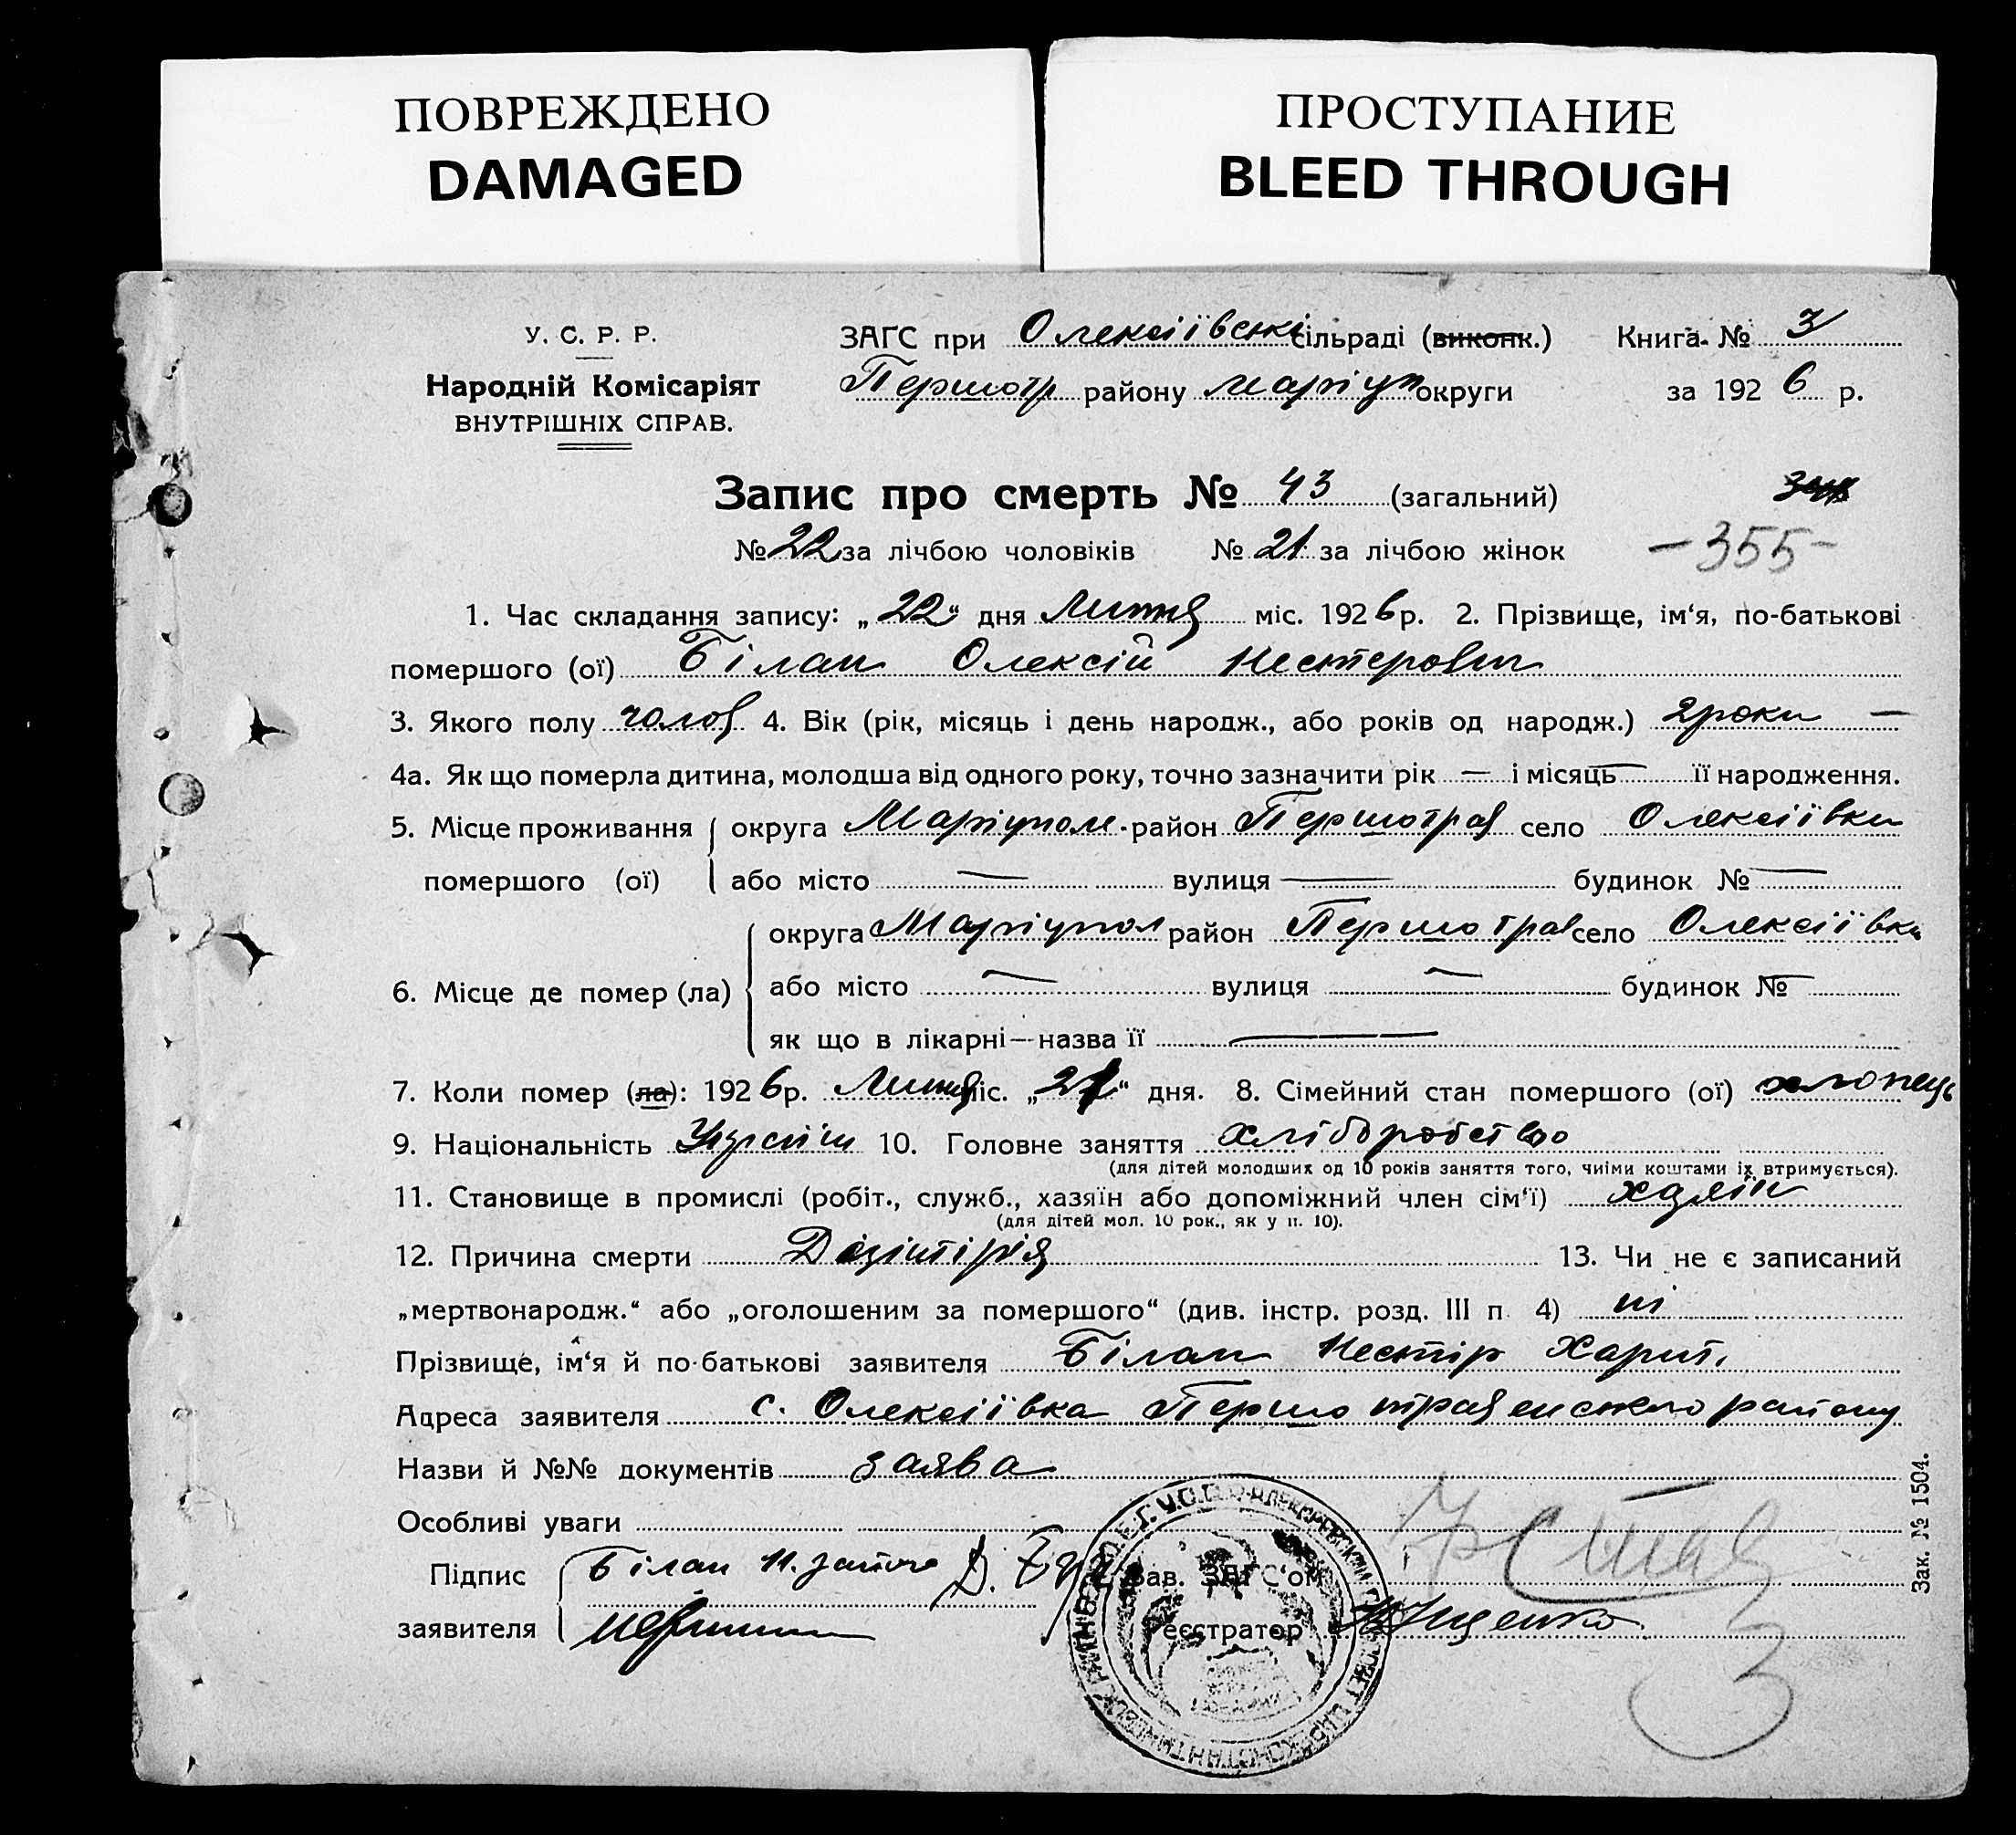 ПОВРЕЖДЕНО
DAMAGED
ПРОСТУПАНИЕ
BLEED THROUGH
У. С. Р. Р.
Народній Комісаріят
ВНУТРІШНІХ СПРАВ.
ЗАГС при Олексіївскі сільраді (виконк.)
Першотр району Маріуп округи
Книга № 3
за 1926 р.
Запис про смерть № 43 (загальний)
№ 22 за лічбою чоловіків № 21 за лічбою жінок
—355—
1. Час складання запису: „22“ дня Липня міс. 1926 р. 2. Прізвище, ім‘я, по-батькові
помершого (ої) Білан Олексій Нестерович
3. Якого полу чолов 4. Вік (рік, місяць і день народж., або років од народж.) 2 роки —
4а. Як що померла дитина, молодша від одного року, точно зазначити рік — і місяць — її народження.
5. Місце проживання помершого (ої) округа Маріупол. район Першотрав село Олексіївка
або місто — вулиця — будинок № —
6. Місце де помер (ла) округа Маріупол район Першотрав село Олексіївка
або місто — вулиця — будинок № —
як що в лікарні—назва її —
7. Коли помер (ла): 1926 р. Липня міс. „21“ дня. 8. Сімейний стан помершого (ої) хлопець
9. Національність Україн 10. Головне заняття хліборобство
(для дітей молодших од 10 років заняття того, чиїми коштами їх втримується).
11. Становище в промислі (робіт., служб., хазяїн або допоміжний член сім‘ї) хазяїн
(для дітей мол. 10 рок., як у п. 10).
12. Причина смерти Дізінтірія 13. Чи не є записаний
„мертвонародж.“ або „оголошеним за помершого“ (див. інстр. розд. III п. 4) ні
Прізвище, ім‘я й по-батькові заявителя Білан Нестір Харит.
Адреса заявителя с. Олексіївка Першотравенского району
Назви й №№ документів заява
Особливі уваги
Підпис заявителя Білан Н.
Зав. ЗАГС‘ом
Реєстратор Ющенко
3
Зак. № 1504.